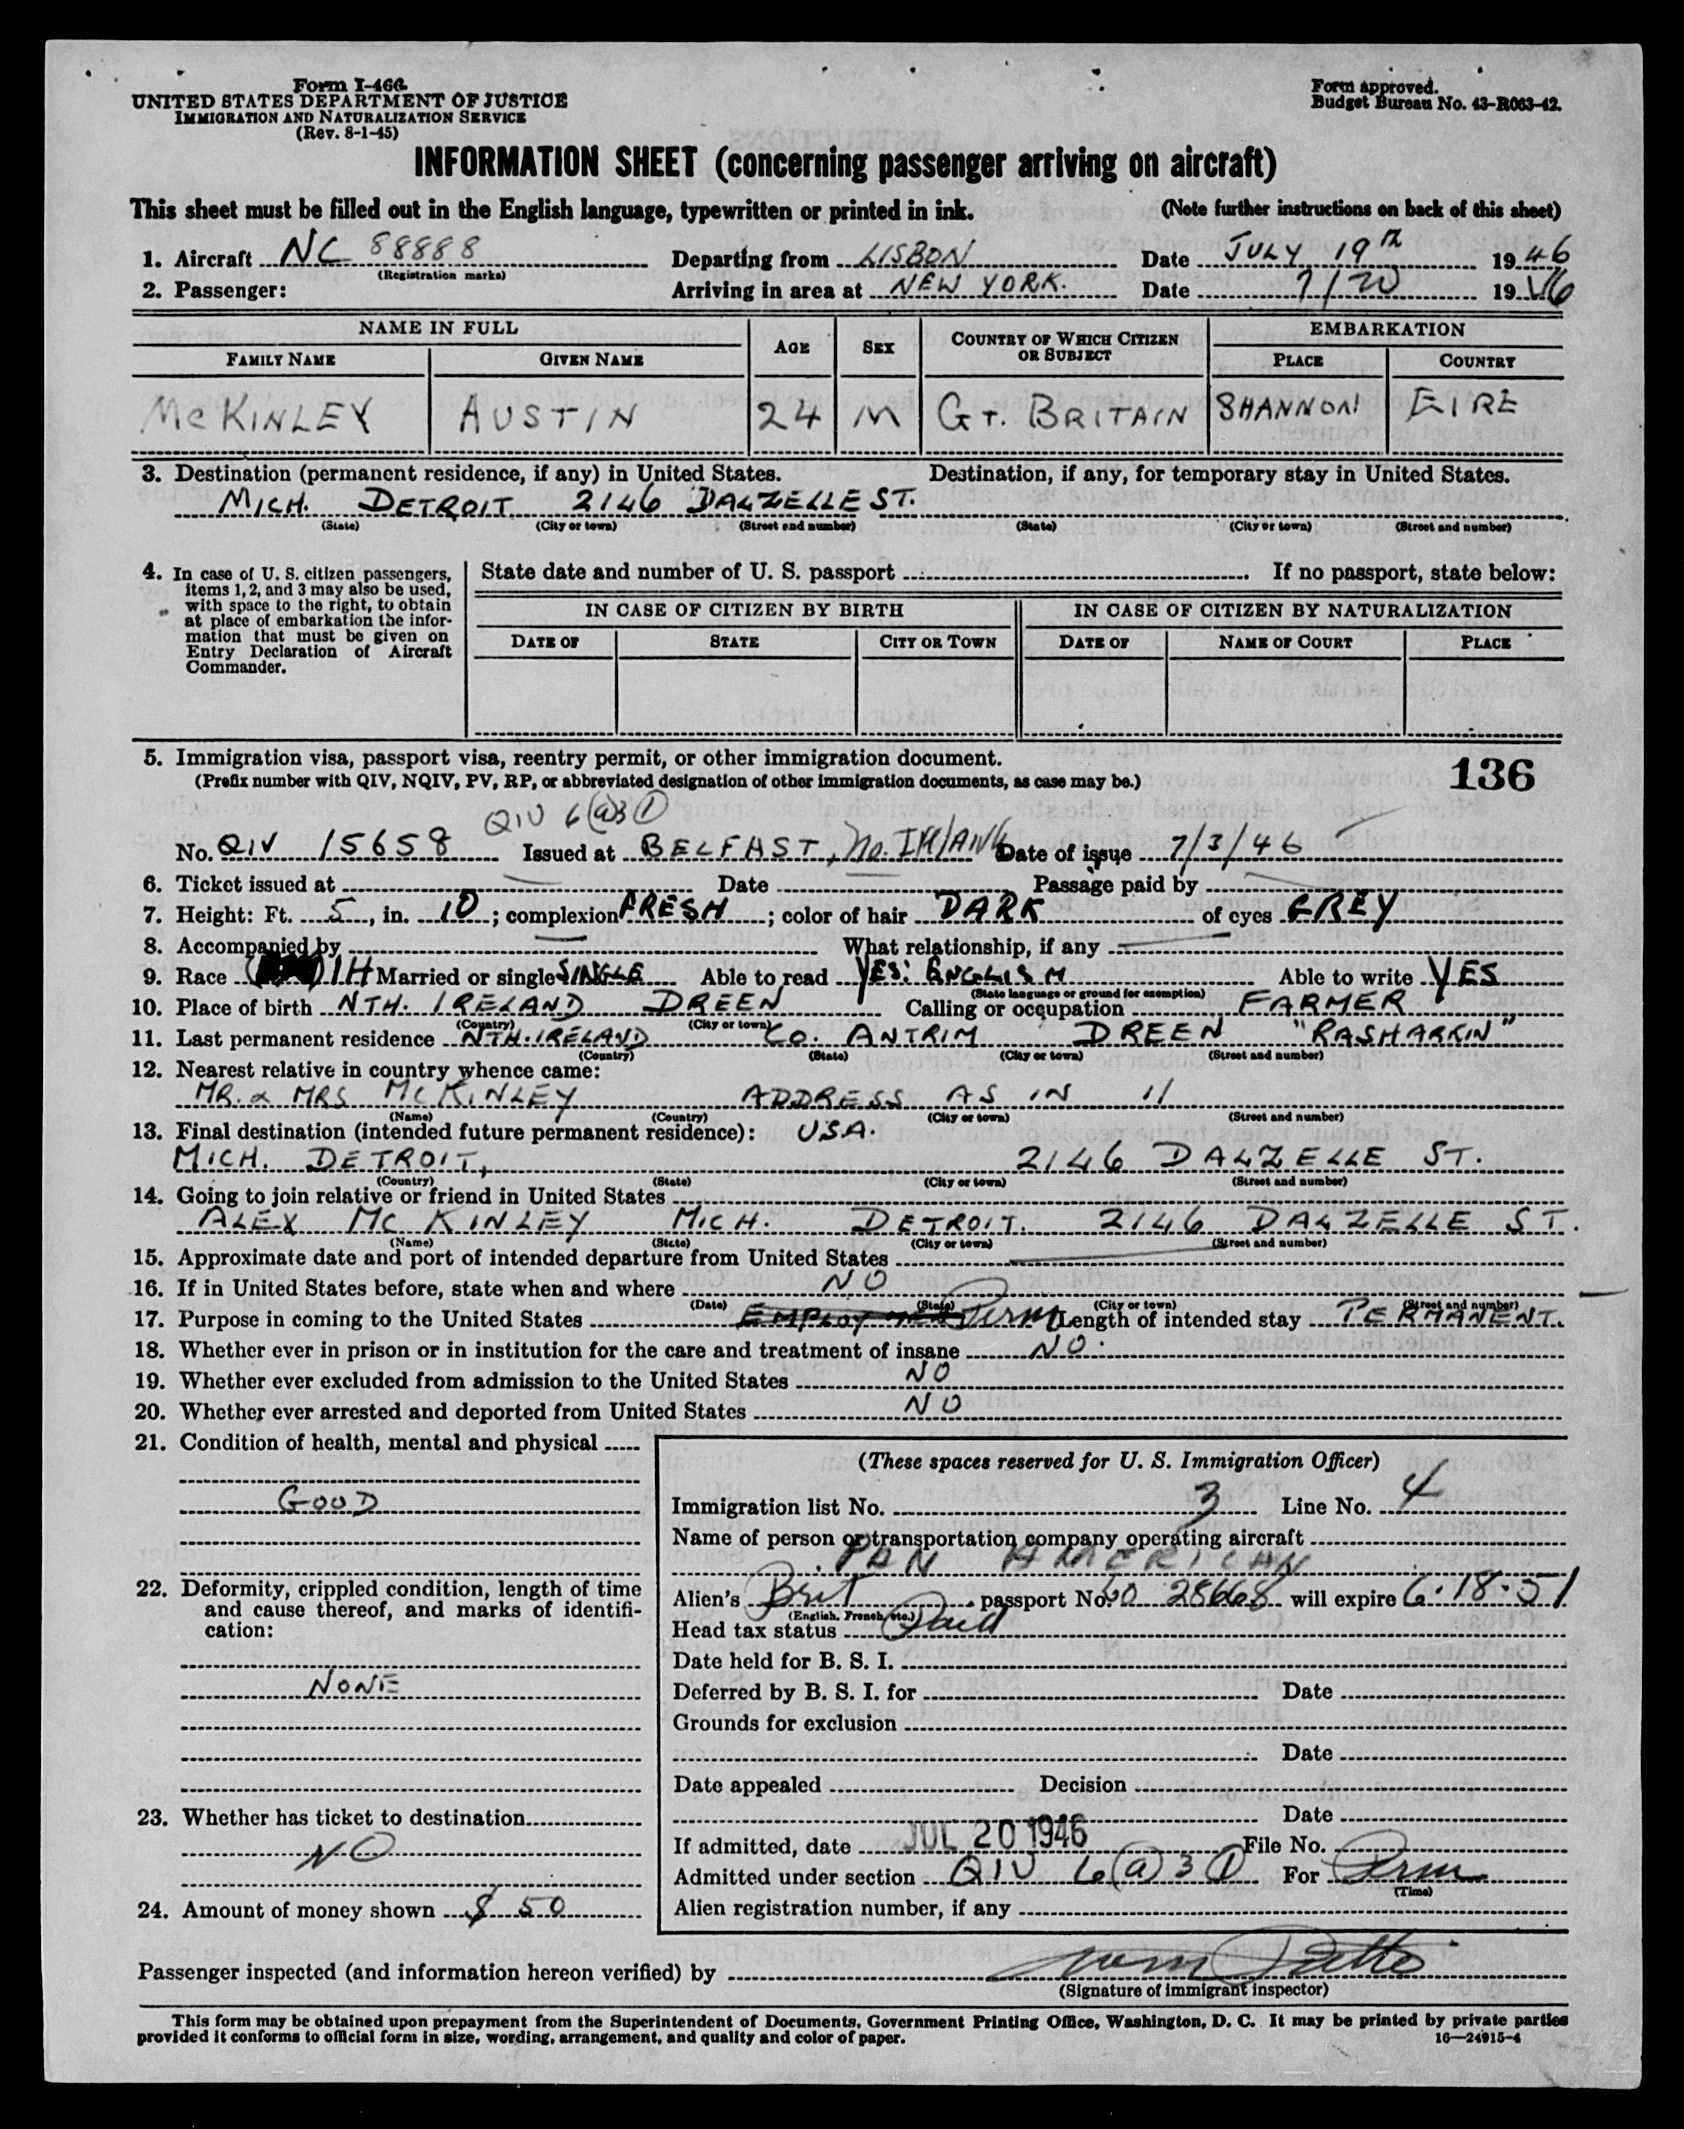 Form I-466
UNITED STATES DEPARTMENT OF JUSTICE
IMMIGRATION AND NATURALIZATION SERVICE
(Rev. 8-1-45)
Form approved.
Budget Bureau No. 43-R063-42.
INFORMATION SHEET (concerning passenger arriving on aircraft)
This sheet must be filled out in the English language, typewritten or printed in ink. (Note further instructions on back of this sheet)
1. Aircraft NC 88888 Departing from LISBON Date JULY 19th 1946
(Registration marks)
2. Passenger: Arriving in area at NEW YORK. Date 7/20 1946
NAME IN FULL AGE SEX COUNTRY OF WHICH CITIZEN OR SUBJECT EMBARKATION
FAMILY NAME GIVEN NAME PLACE COUNTRY
McKINLEY AUSTIN 24 M GT. BRITAIN SHANNON EIRE
3. Destination (permanent residence, if any) in United States. Destination, if any, for temporary stay in United States.
MICH. DETROIT 2146 DALZELLE ST.
(State) (City or town) (Street and number) (State) (City or town) (Street and number)
4. In case of U. S. citizen passengers, items 1, 2, and 3 may also be used, with space to the right, to obtain at place of embarkation the information that must be given on Entry Declaration of Aircraft Commander.
State date and number of U. S. passport If no passport, state below:
IN CASE OF CITIZEN BY BIRTH IN CASE OF CITIZEN BY NATURALIZATION
DATE OF STATE CITY OR TOWN DATE OF NAME OF COURT PLACE
5. Immigration visa, passport visa, reentry permit, or other immigration document.
(Prefix number with QIV, NQIV, PV, RP, or abbreviated designation of other immigration documents, as case may be.)
136
QIV 6(a)3(1)
No. QIV 15658 Issued at BELFAST, No. Ireland Date of issue 7/3/46
6. Ticket issued at Date Passage paid by
7. Height: Ft. 5, in. 10; complexion FRESH; color of hair DARK of eyes GREY
8. Accompanied by What relationship, if any
9. Race IH Married or single SINGLE Able to read YES: ENGLISH Able to write YES
(State language or ground for exemption)
10. Place of birth NTH. IRELAND DREEN Calling or occupation FARMER
(Country) (City or town)
11. Last permanent residence NTH. IRELAND CO. ANTRIM DREEN "RASHARKIN"
(Country) (State) (City or town) (Street and number)
12. Nearest relative in country whence came:
MR. & MRS McKINLEY ADDRESS AS IN 11
(Name) (Country) (City or town) (Street and number)
13. Final destination (intended future permanent residence): USA.
MICH. DETROIT, 2146 DALZELLE ST.
(Country) (State) (City or town) (Street and number)
14. Going to join relative or friend in United States
ALEX McKINLEY MICH. DETROIT. 2146 DALZELLE ST.
(Name) (State) (City or town) (Street and number)
15. Approximate date and port of intended departure from United States
16. If in United States before, state when and where NO
(Date) (State) (City or town) (Street and number)
17. Purpose in coming to the United States Perm Length of intended stay PERMANENT.
18. Whether ever in prison or in institution for the care and treatment of insane NO.
19. Whether ever excluded from admission to the United States NO
20. Whether ever arrested and deported from United States NO
21. Condition of health, mental and physical
GOOD
22. Deformity, crippled condition, length of time and cause thereof, and marks of identification:
NONE
23. Whether has ticket to destination
NO
24. Amount of money shown $ 50
(These spaces reserved for U. S. Immigration Officer)
Immigration list No. 3 Line No. 4
Name of person or transportation company operating aircraft
PAN AMERICAN
Alien's Brit passport No. 28668 will expire 6-18-51
(English, French, etc.)
Head tax status Paid
Date held for B. S. I.
Deferred by B. S. I. for Date
Grounds for exclusion
Date
Date appealed Decision
Date
If admitted, date JUL 20 1946 File No.
Admitted under section QIV 6(a)3(1) For Perm
(Time)
Alien registration number, if any
Passenger inspected (and information hereon verified) by
(Signature of immigrant inspector)
This form may be obtained upon prepayment from the Superintendent of Documents, Government Printing Office, Washington, D. C. It may be printed by private parties
provided it conforms to official form in size, wording, arrangement, and quality and color of paper. 16—24915-4